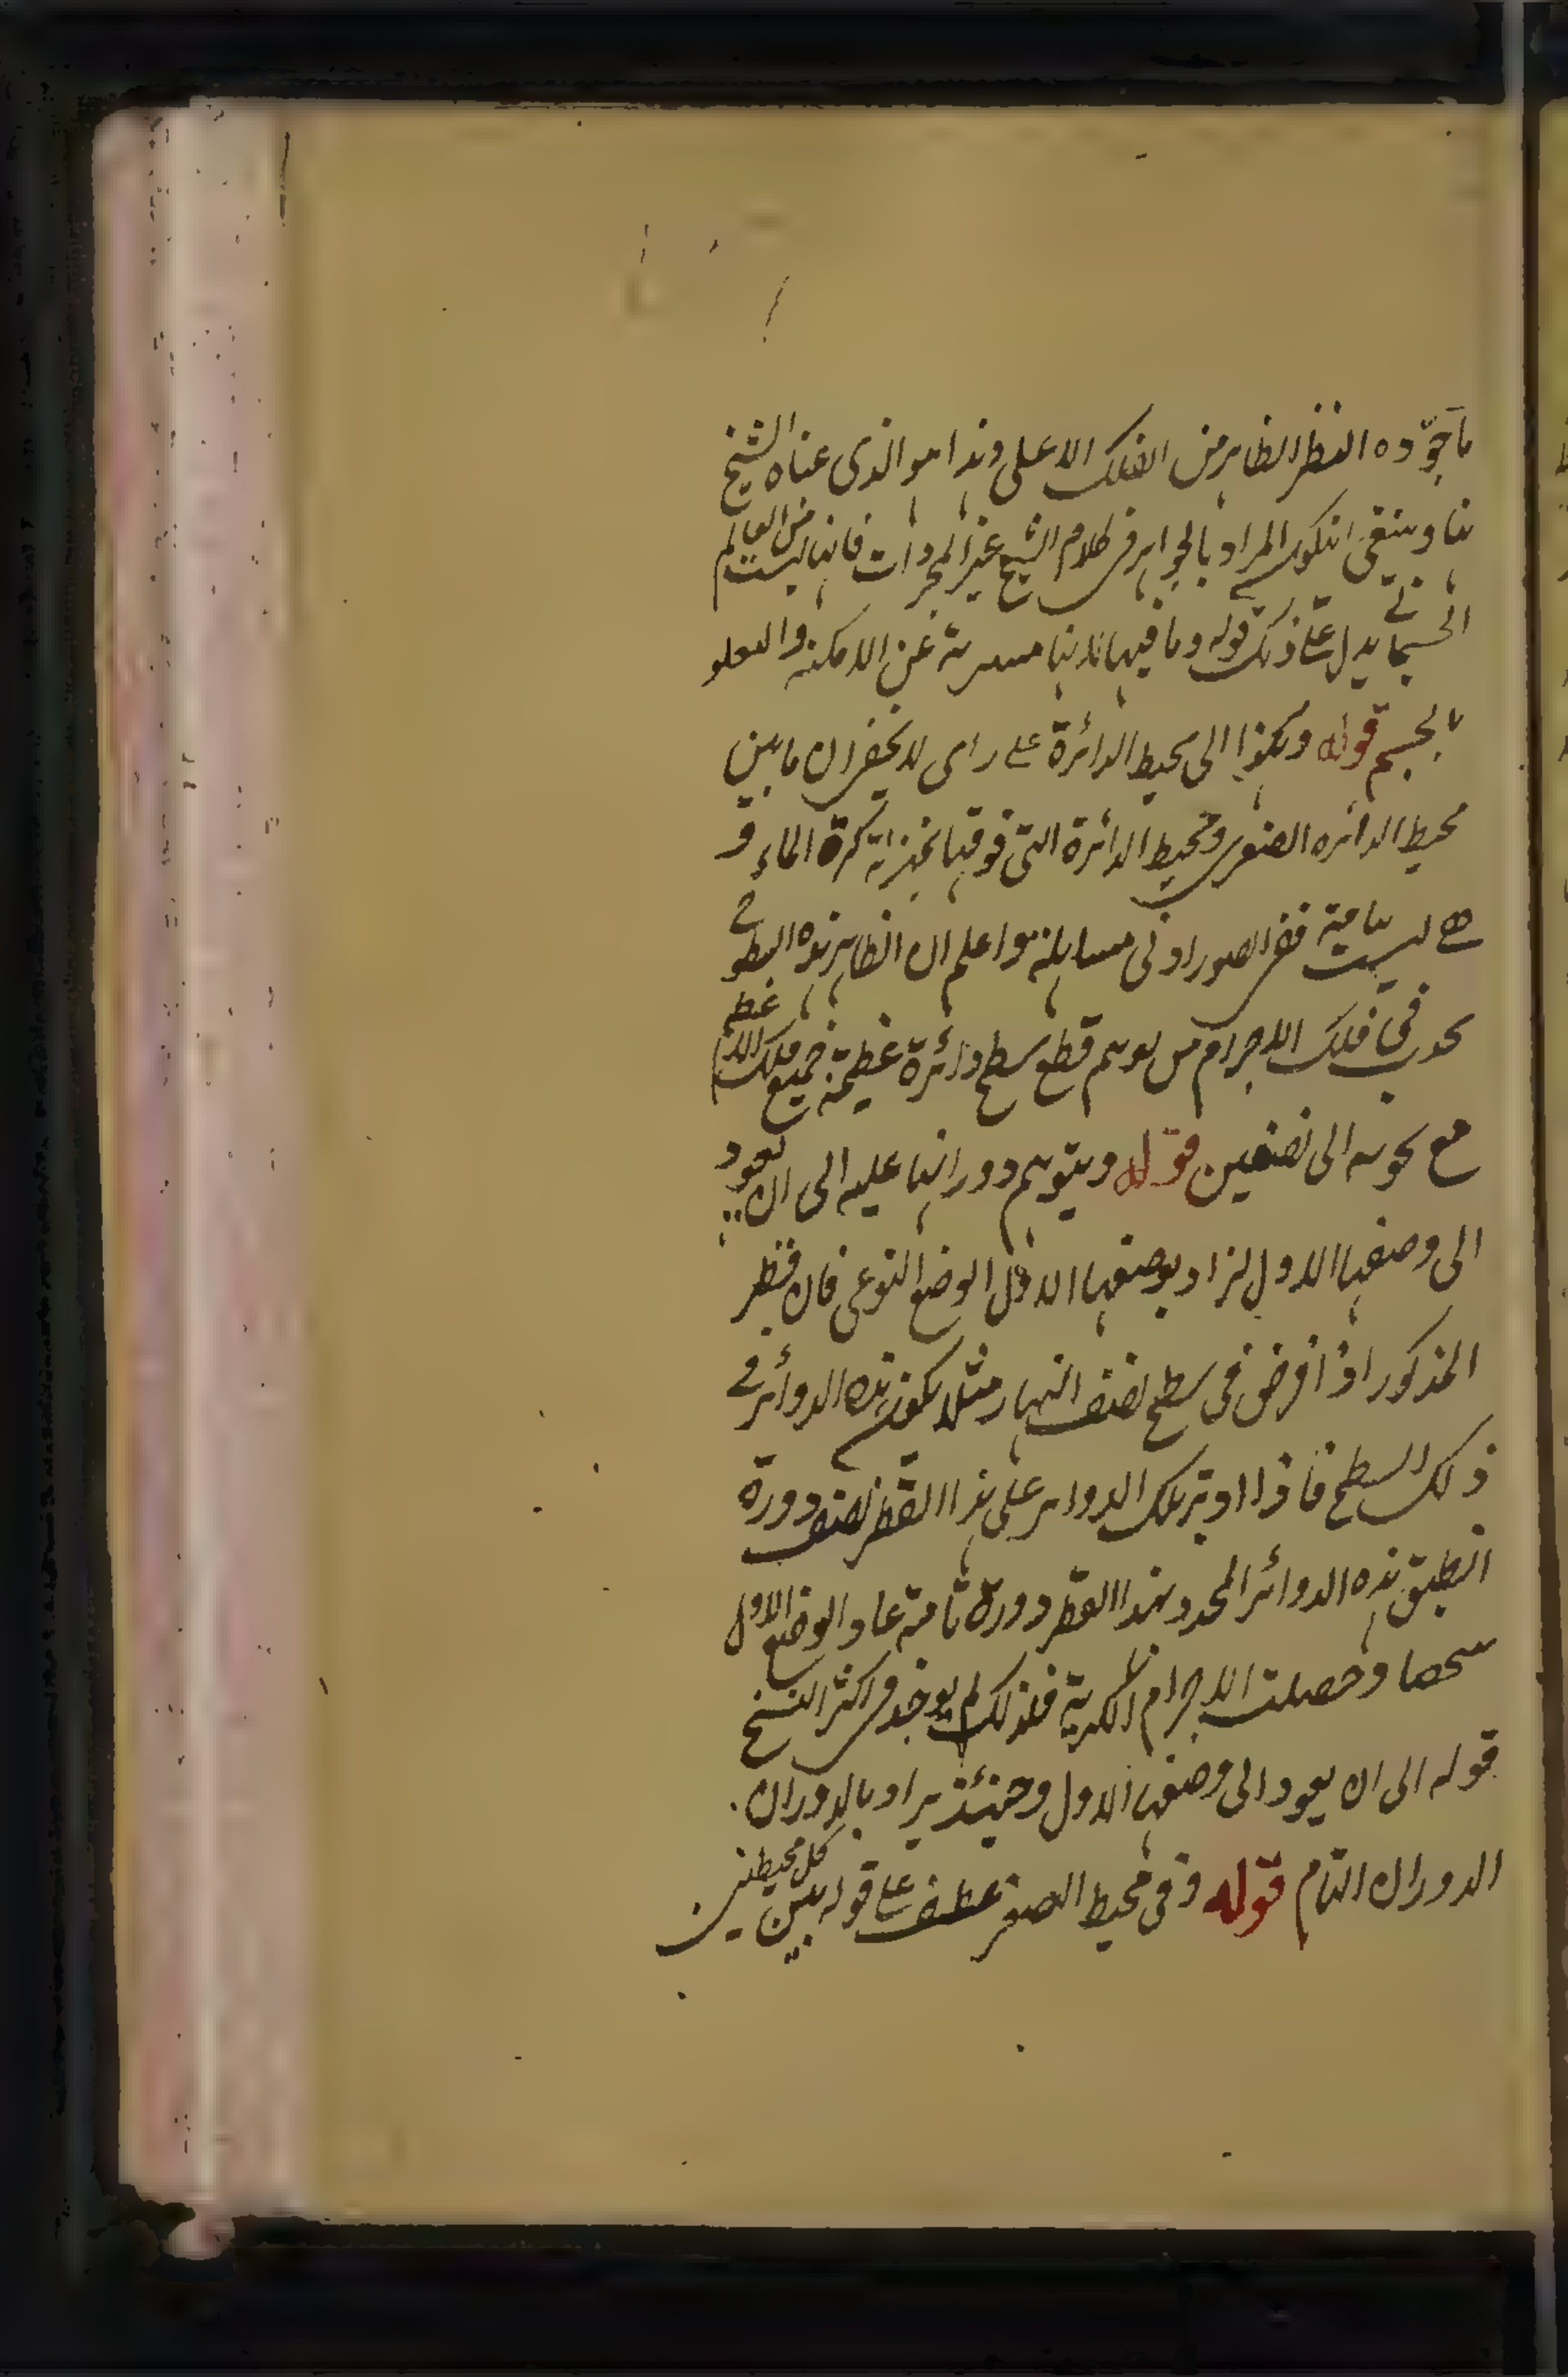 ما جوّده النظر الظاهر من الفلك الاعلى وهذا هو الذى عناه الشيخ
هنا وينبغى ان يكون المراد بالجواهر فى كلام الشيخ غير المجردات فانها ليست من العالم
الجسمانى يدل على ذلك قوله وما فيها لانها مبرية عن الامكنة والتعلق
بالجسم قوله وهكذا الى محيط الدائرة على راى لا يخفى ان ما بين
محيط الدائره الصغرى ومحيط الدائرة التى فوقها بمنزلة كرة الماء و
هى ليست بتامة ففى الصور ادنى مساهلة واعلم ان الظاهر هذه السطوح
تحدث فى فلك الاجرام من توهم قطع سطح دائرة عظيمة جميع فلك الاعظم
مع نحويه الى نصفين قوله ويتوهم دورانها عليه الى ان يعود
الى وضعها الاول يراد بوضعها الاول الوضع النوعى فان قطر
المذكور اذا فرض فى سطح نصف النهار مثلا يكون هذه الدوائر فى
ذلك السطح فاذا ادير تلك الدواير على هذا القطر نصف دورة
انطبق هذه الدوائر المحدد بهذا القطر دورة تامة عاد الوضع الاول
شخصا وحصلت الاجرام الكرية فلذلك لم يوجد فى اكثر النسخ
قوله الى ان يعود الى وضعها الاول وحينئذ يراد بالدوران
الدوران التام قوله وفى محيط الصغر عطف على قوله بين كل محيطين